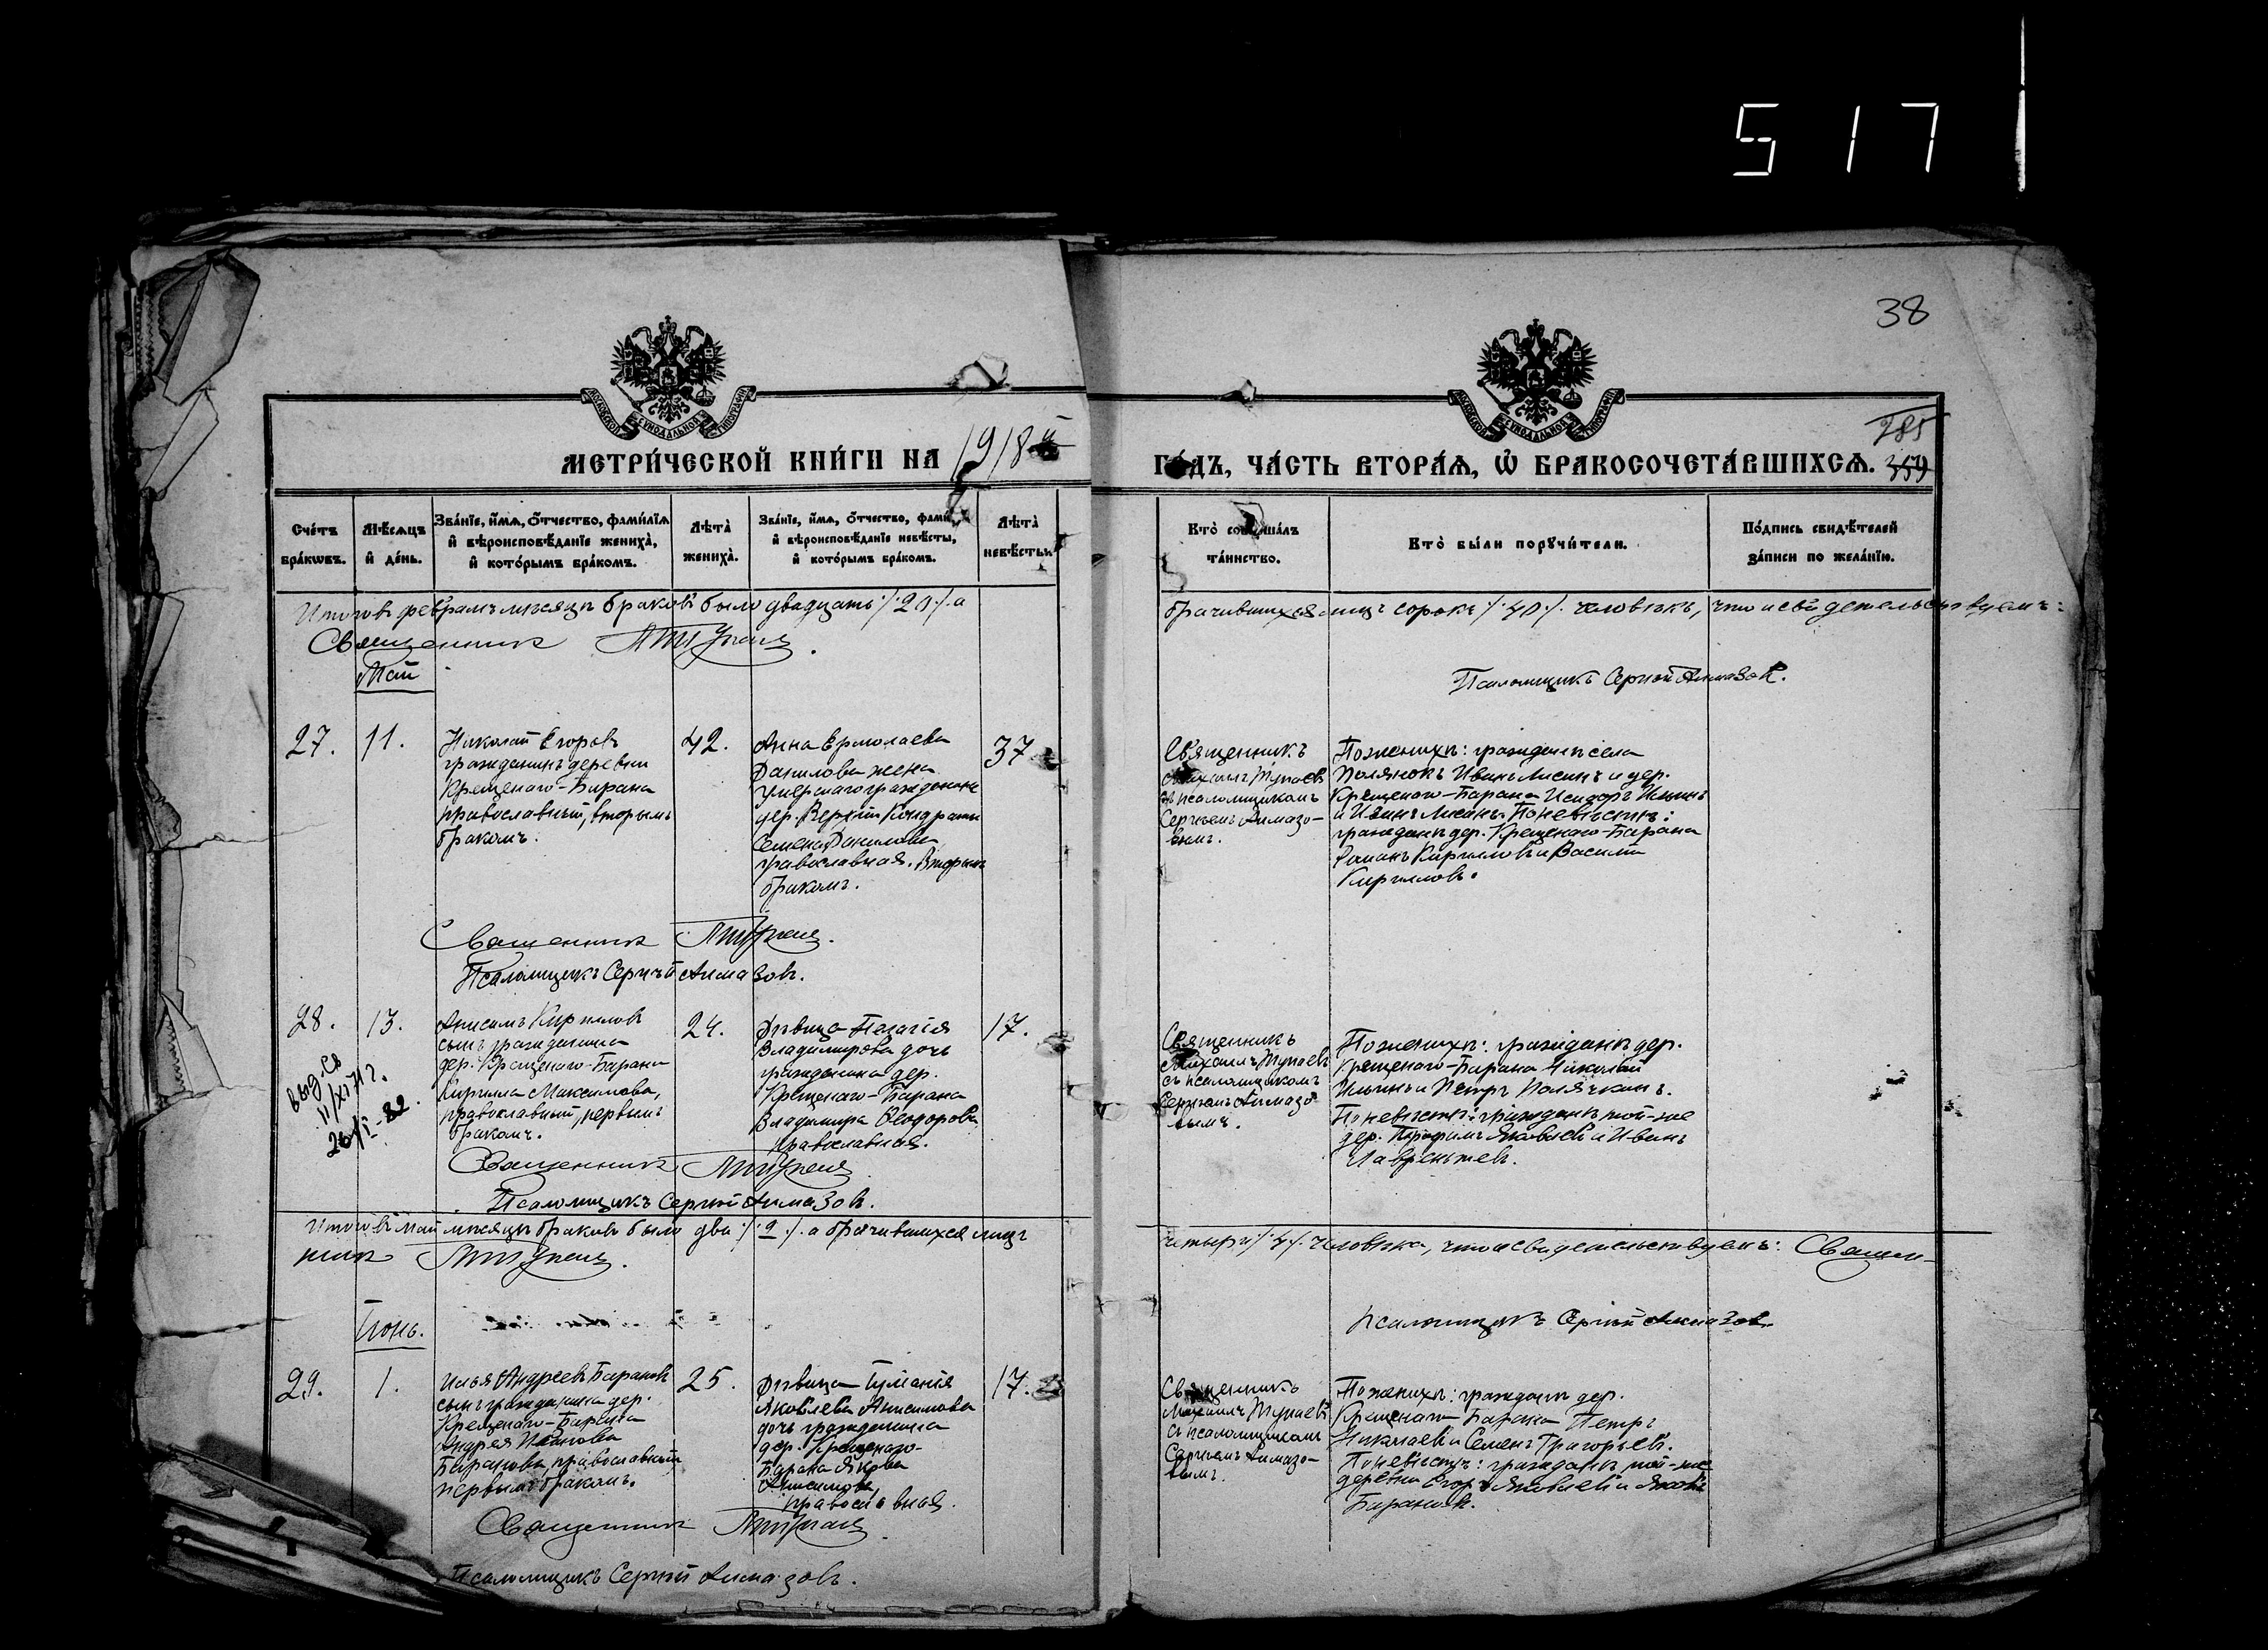 517
38
МЕТРИ́ЧЕСКОЙ КНИ́ГИ НА 1918 й
ГО́ДЪ, ЧА́СТЬ ВТОРА́Ѧ, Ѽ БРАКОСОЧЕТА́ВШИХСѦ.
285
359
Сче́тъ бра́кѡвъ.
Мѣ́сѧцъ и҆ де́нь.
Зва́нїе, и҆́мѧ, ѻ҆́тчество, фами́лїѧ и҆ вѣроисповѣ́данїе жениха̀, и҆ кото́рымъ бра́комъ.
Лѣта̀ жениха̀.
Зва́нїе, и҆́мѧ, ѻ҆́тчество, фами и҆ вѣроисповѣ́данїе невѣ́сты, и҆ кото́рымъ бра́комъ.
Лѣта̀ невѣ́сты.
Кто̀ соверша́лъ та́инство.
Кто̀ бы́ли порꙋчи́тели.
По́дпись свидѣ́телей за́писи по жела́нїю.
Итого въ февралѣ мѣсяцѣ браковъ было двадцать /20/. а
брачившихся лицъ сорокъ /40/. человѣкъ, что и свидетельствуемъ:
Священникъ
Псаломщикъ Сергѣй Алмазовъ.
Май
27.
11.
Николай Егоровъ
гражданинъ деревни
Крещенаго-Барана
православный, вторымъ
бракомъ.
42.
Анна Ермолаева
Данилова жена
умершаго гражданина
дер. Верхній Кондраты
Семена Данилова
православная. Вторымъ
бракомъ.
37
Священникъ
Михаилъ Тупаевъ
съ псаломщикомъ
Сергѣемъ Алмазо-
вымъ.
По женихѣ: граждане села
Полянокъ Иванъ Лисинъ и дер.
Крещенаго-Барана Исидоръ Ильинъ
и Иванъ Лисинъ. По невѣстѣ:
граждане дер. Крещенаго-Барана
Романъ Кирилловъ и Василій
Кирилловъ.
Священникъ
Псаломщикъ Сергѣй Алмазовъ.
28.
13.
выд. св
11/XI 71 г.
26/I-82.
Анисимъ Кирилловъ
сынъ гражданина
дер. Крещенаго-Барана
Кирилла Максимова,
православный, первымъ
бракомъ.
24.
Дѣвица Пелагія
Владимирова дочь
гражданина дер.
Крещенаго-Барана
Владимира Ѳеодорова
православная.
17.
Священникъ
Михаилъ Тупаевъ
съ псаломщикомъ
Сергѣемъ Алмазо
вымъ.
По женихѣ: граждане дер.
Крещенаго-Барана Николай
Ильинъ и Петръ Полячкинъ.
По невѣстѣ: граждане той-же
дер. Яковлевъ и Иванъ
Лаврентьевъ.
Священникъ
Псаломщикъ Сергѣй Алмазовъ.
Итого въ май мѣсяцѣ браковъ было два /2/. а брачившихся лицъ
четыре /4/. человѣка, что и свидетельствуемъ: Священ-
никъ
Псаломщикъ Сергѣй Алмазовъ.
Іюнь.
29.
1.
Илья Андреевъ Барановъ
сынъ гражданина дер.
Крещенаго-Барана
Андрея
Баранова, православный
первымъ бракомъ.
25.
Дѣвица Іуліанія
Яковлева Анисимова
дочь гражданина
дер. Крещенаго-
Барана Якова
Анисимова,
православная.
17.
Священникъ
Михаилъ Тупаевъ
съ псаломщикомъ
Сергѣемъ Алмазо-
вымъ.
По женихѣ: граждане дер.
Крещенаго Барана Петръ
Николаевъ и Семенъ Григорьевъ.
По невѣстѣ: граждане той-же
деревни Егоръ Яковлевъ и Яковъ
Барановъ.
Священникъ
Псаломщикъ Сергѣй Алмазовъ.